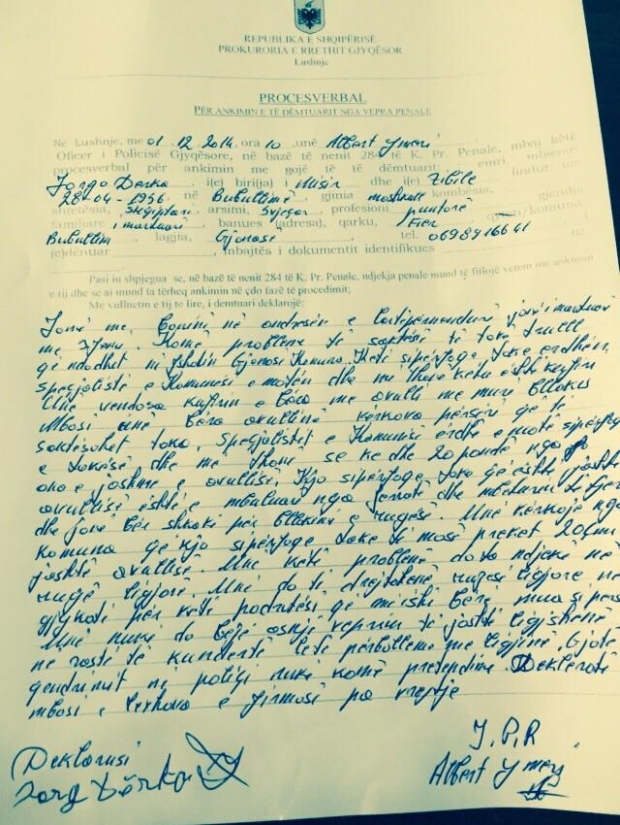 REPUBLIKA E SHQIPËRISË
PROKURORIA E RRETHIT GJYQËSOR
Lushnje
PROCESVERBAL
PËR ANKIMIN E TË DËMTUARIT NGA VEPRA PENALE
Në Lushnje, me 01.12.2014. ora 10, unë Albert Ymeri
Oficer i Policisë Gjyqësore, në bazë të nenit 284 të K. Pr. Penale, mbaj këtë
procesverbal për ankimin me gojë të të dëmtuarit: emri, mbiemri
Jorgo Darka, i(e) bir(ija) i Misir dhe i(e) Zibile lindur më
28-04-1956 në Bubullimë gjinia mashkull kombësia,
shtetësia, Shqiptari arsimi, 8vjeçar, profesioni puntorë gjendja
familjare i martuar banues (adresa), qarku, Fier
Bubullim lagjja, Gjonas, tel. 0698916641
lejdentuar mbajtës i dokumentit identifikues
Pasi iu shpjegua se, në bazë të nenit 284 të K. Pr. Penale, ndjekja penale mund të fillojë vetëm me ankimin
e tij dhe se ai mund ta tërheq ankimin në çdo fazë të procedimit;
Me vullnetin e tij te lire, i demtuari deklarojë:
Jam me banim në andresën e lartëpermendur jam i martuar
me 3 fëmi. Kame probleme të saktësë të tokë trullë
që ndodhet ni fshatin Gjonas Komuna. Ketë sipërfaqe toke erdhën
spesjalistë e Komunës e matën dhe më thanë këtu është kufiri
Unë vendosa kufirin e bëra me avulli me murë blloku
Mbasi unë bëra avullinë kërkova përsëri që të
saktësohet toka, spesjalistët e Komunës erdhe e matë sipërfaqe
e tokësë dhe me thonë se ke dhe 20 pondë nga
ana e jashtme e avullisë. Kjo sipërfaqe toke që është jashtë
avullisë është e mbuluar nga ferrat dhe
dhe janë bër shkak për bllokimin e rugësë. Unë kërkoj nga
Komuna që kjo sipërfaqe toke të mosë preket 20 cm
jashtë avullisë. Unë ketë problemë do ta ndjekë në
rrugë ligjore. Unë do të drejtohem rrugësë ligjore, në
gjykatë për ketë padrejtësi që më është bërë mua si person
Unë nuk do bëjë asnjë veprim të jashtë ligjshëm
në rastë të kundertë letë përballem me ligjinë. Gjatë
qendrimit në polici nuk kam pretendime. Deklaratë
mbasi e lexova e firmosi pa vrejtje
Deklaruesi
Jorgo Darka
J.P.R
Albert Ymeri